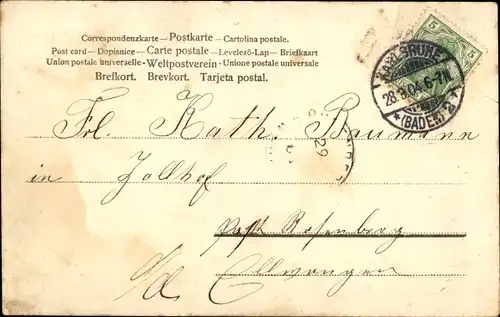 Correspondenzkarte — Postkarte — Cartolina postale.
Post card — Dopisnice — Carte postale — Levelező-Lap — Briefkaart
Union postale universelle — Weltpostverein — Unione postale universale
Brefkort. Brevkort. Tarjeta postal.
5 5
KARLSRUHE
28.8.04. 6-7N.
* (BADEN) 2 *
Frl. Kath. Baumann
29
in Zollhof
Post Rosenberg
O/A Ellwangen